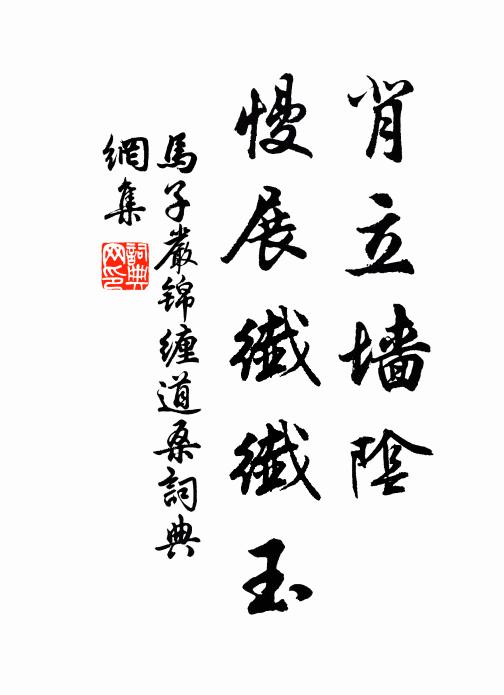 背立墙陰
慢展纖纖玉
馬子嚴錦缠道桑詞典
網集
詞典
网印